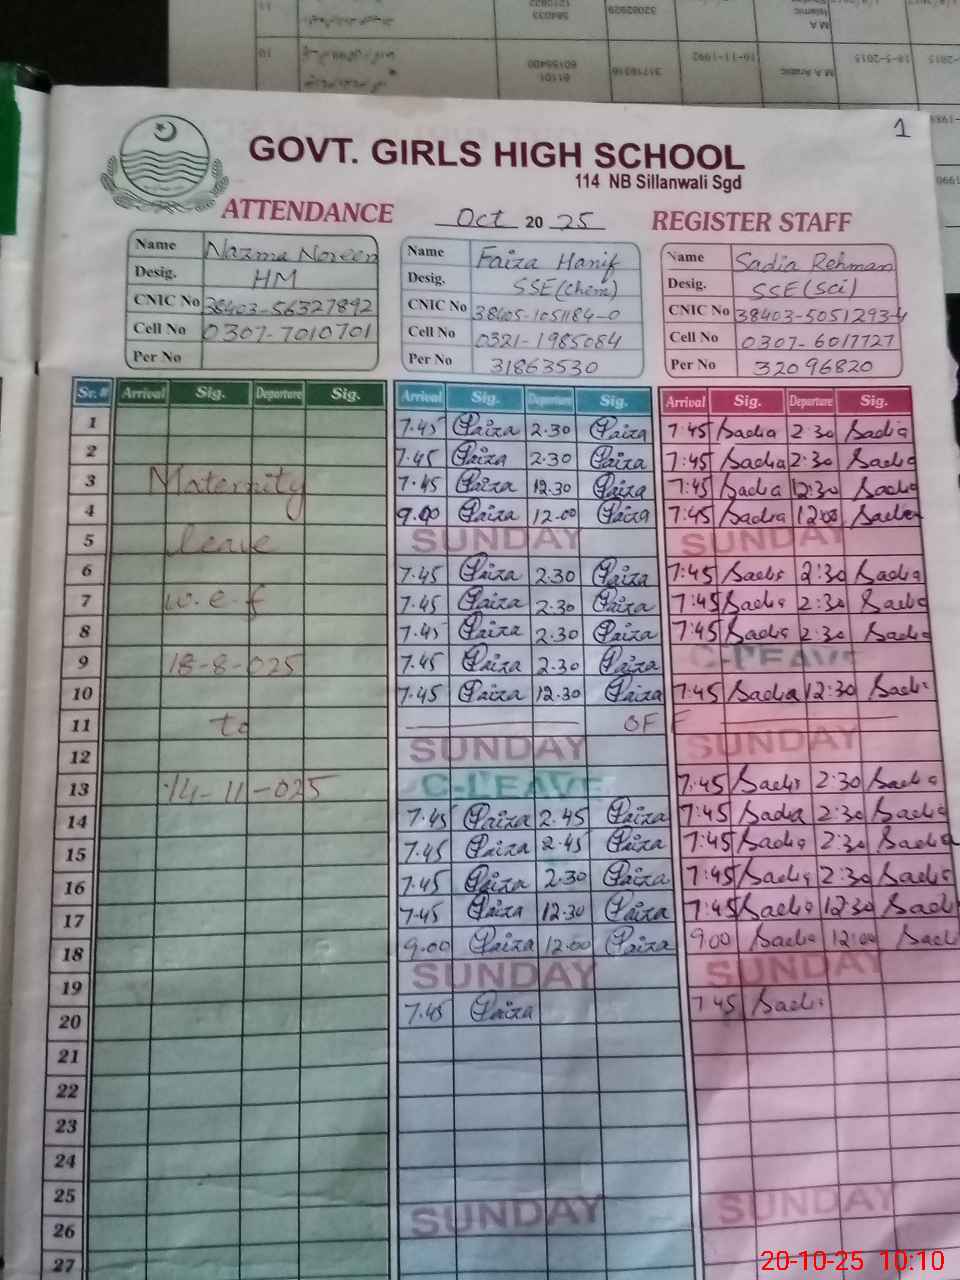 1
GOVT. GIRLS HIGH SCHOOL
114 NB Sillanwali Sgd
ATTENDANCE Oct 2025 REGISTER STAFF
Name Nazma Noreen Name Faiza Hanif Name Sadia Rehman
Desig. HM Desig. SSE(Chem) Desig. SSE(Sci)
CNIC No 38403-56327892 CNIC No 38405-1051184-0 CNIC No 38403-5051293-4
Cell No 0307-7010701 Cell No 0321-1985084 Cell No 0307-6017727
Per No Per No 31863530 Per No 32096820
Sr.# Arrival Sig. Departure Sig. Arrival Sig. Departure Sig. Arrival Sig. Departure Sig.
1 7.45 Faiza 2.30 Faiza 7:45 Sadia 2:30 Sadia
2 7.45 Faiza 2.30 Faiza 7:45 Sadia 2:30 Sadia
3 Maternity 7.45 Faiza 12.30 Faiza 7:45 Sadia 12:30 Sadia
4 9.00 Faiza 12.00 Faiza 7:45 Sadia 12:00 Sadia
5 leave SUNDAY SUNDAY
6 7.45 Faiza 2.30 Faiza 7:45 Sadia 2:30 Sadia
7 w.e.f 7.45 Faiza 2.30 Faiza 7:45 Sadia 2:30 Sadia
8 7.45 Faiza 2.30 Faiza 7:45 Sadia 2:30 Sadia
9 18-8-025 7.45 Faiza 2.30 Faiza C-LEAVE
10 7.45 Faiza 12.30 Faiza 7:45 Sadia 12:30 Sadia
11 to OFF
12 SUNDAY SUNDAY
13 14-11-025 C-LEAVE 7:45 Sadia 2:30 Sadia
14 7.45 Faiza 2.45 Faiza 7:45 Sadia 2:30 Sadia
15 7.45 Faiza 2.45 Faiza 7:45 Sadia 2:30 Sadia
16 7.45 Faiza 2.30 Faiza 7:45 Sadia 2:30 Sadia
17 7.45 Faiza 12.30 Faiza 7:45 Sadia 12:30 Sadia
18 9.00 Faiza 12.00 Faiza 9:00 Sadia 12:00 Sadi
19 SUNDAY SUNDAY
20 7.45 Faiza 7:45 Sadia
21
22
23
24
25
26 SUNDAY SUNDAY
27
20-10-25 10:10